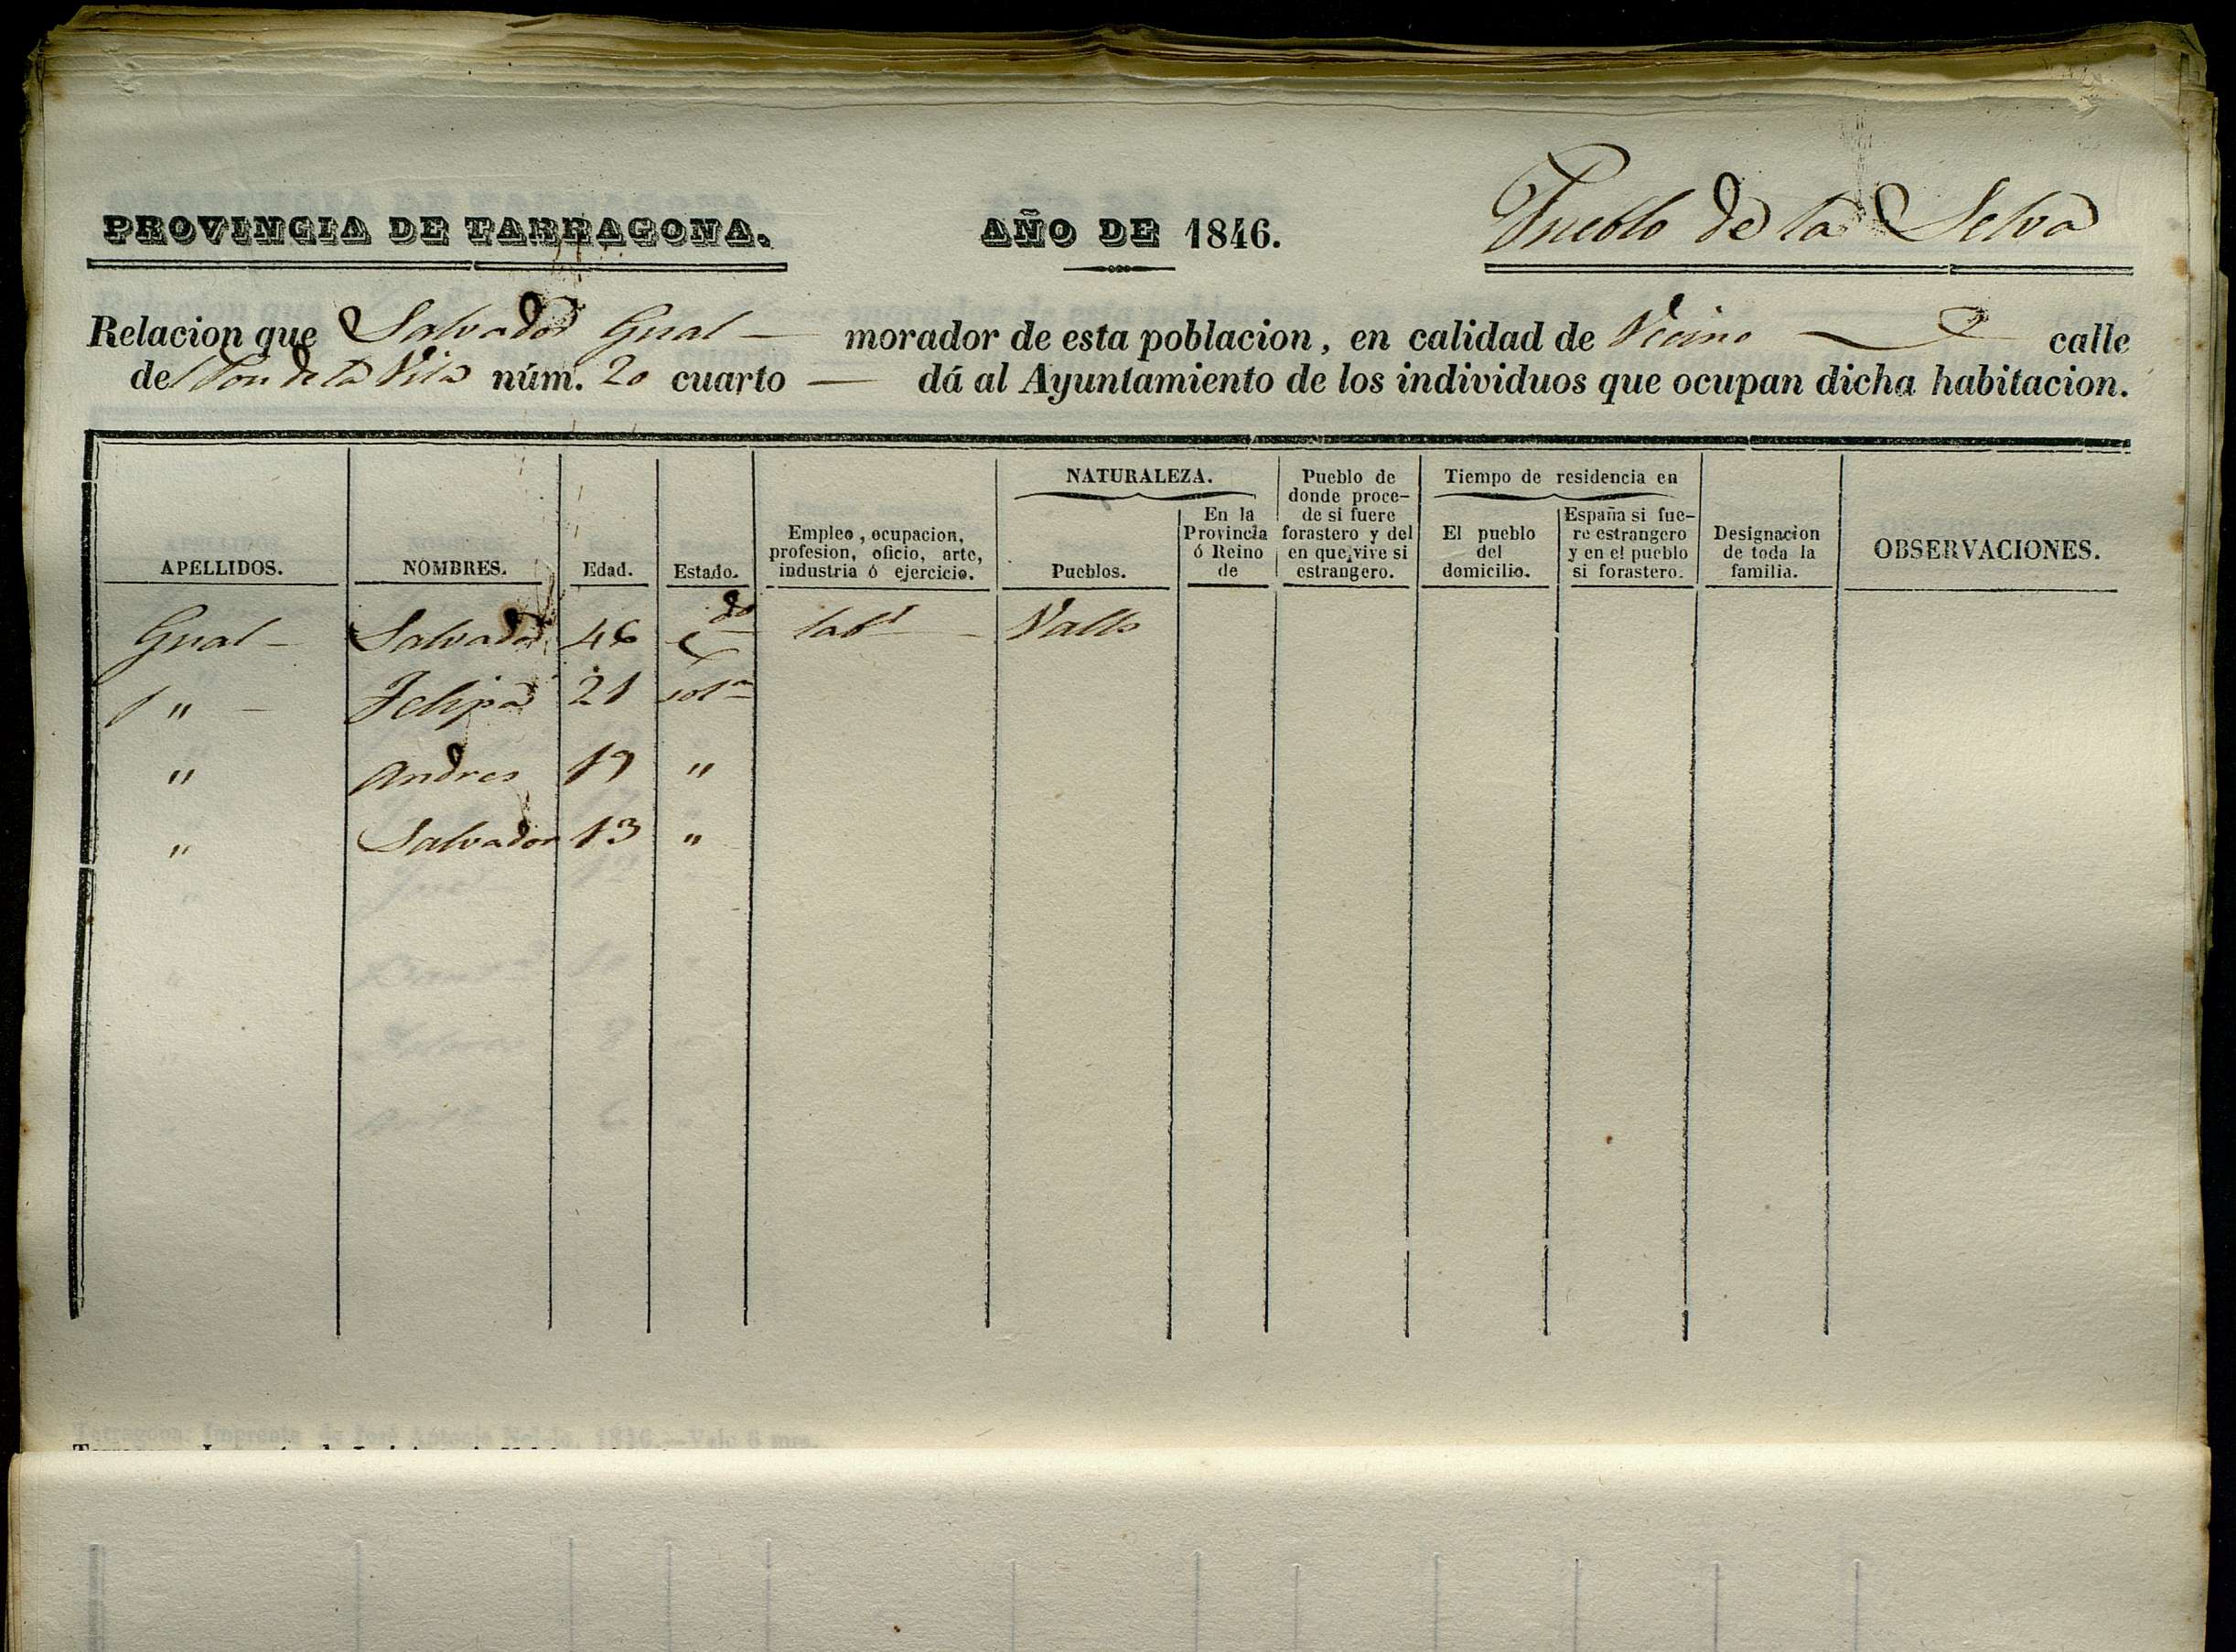 PROVINCIA DE TARRAGONA.
AÑO DE 1846.
Pueblo de la Selva
Relacion que Salvador Gual — morador de esta poblacion, en calidad de Vecino — calle
del de la Vila núm. 20 cuarto — dá al Ayuntamiento de los individuos que ocupan dicha habitacion.
APELLIDOS.
NOMBRES.
Edad.
Estado.
Empleo, ocupacion,
profesion, oficio, arte,
industria ó ejercicio.
NATURALEZA.
Pueblos.
En la
Provincia
ó Reino
de
Pueblo de
donde proce-
de si fuere
forastero y del
en que vive si
estrangero.
Tiempo de residencia en
El pueblo
del
domicilio.
España si fue-
re estrangero
y en el pueblo
si forastero.
Designacion
de toda la
familia.
OBSERVACIONES.
Gual — Salvador 46 cdo labr — Valls
" — Felipa 21 solra
" Andres 17 "
" Salvador 13 "
Tarragona: Imprenta de José Antonio Nel·lo, 1846.—Vale 6 mrs.